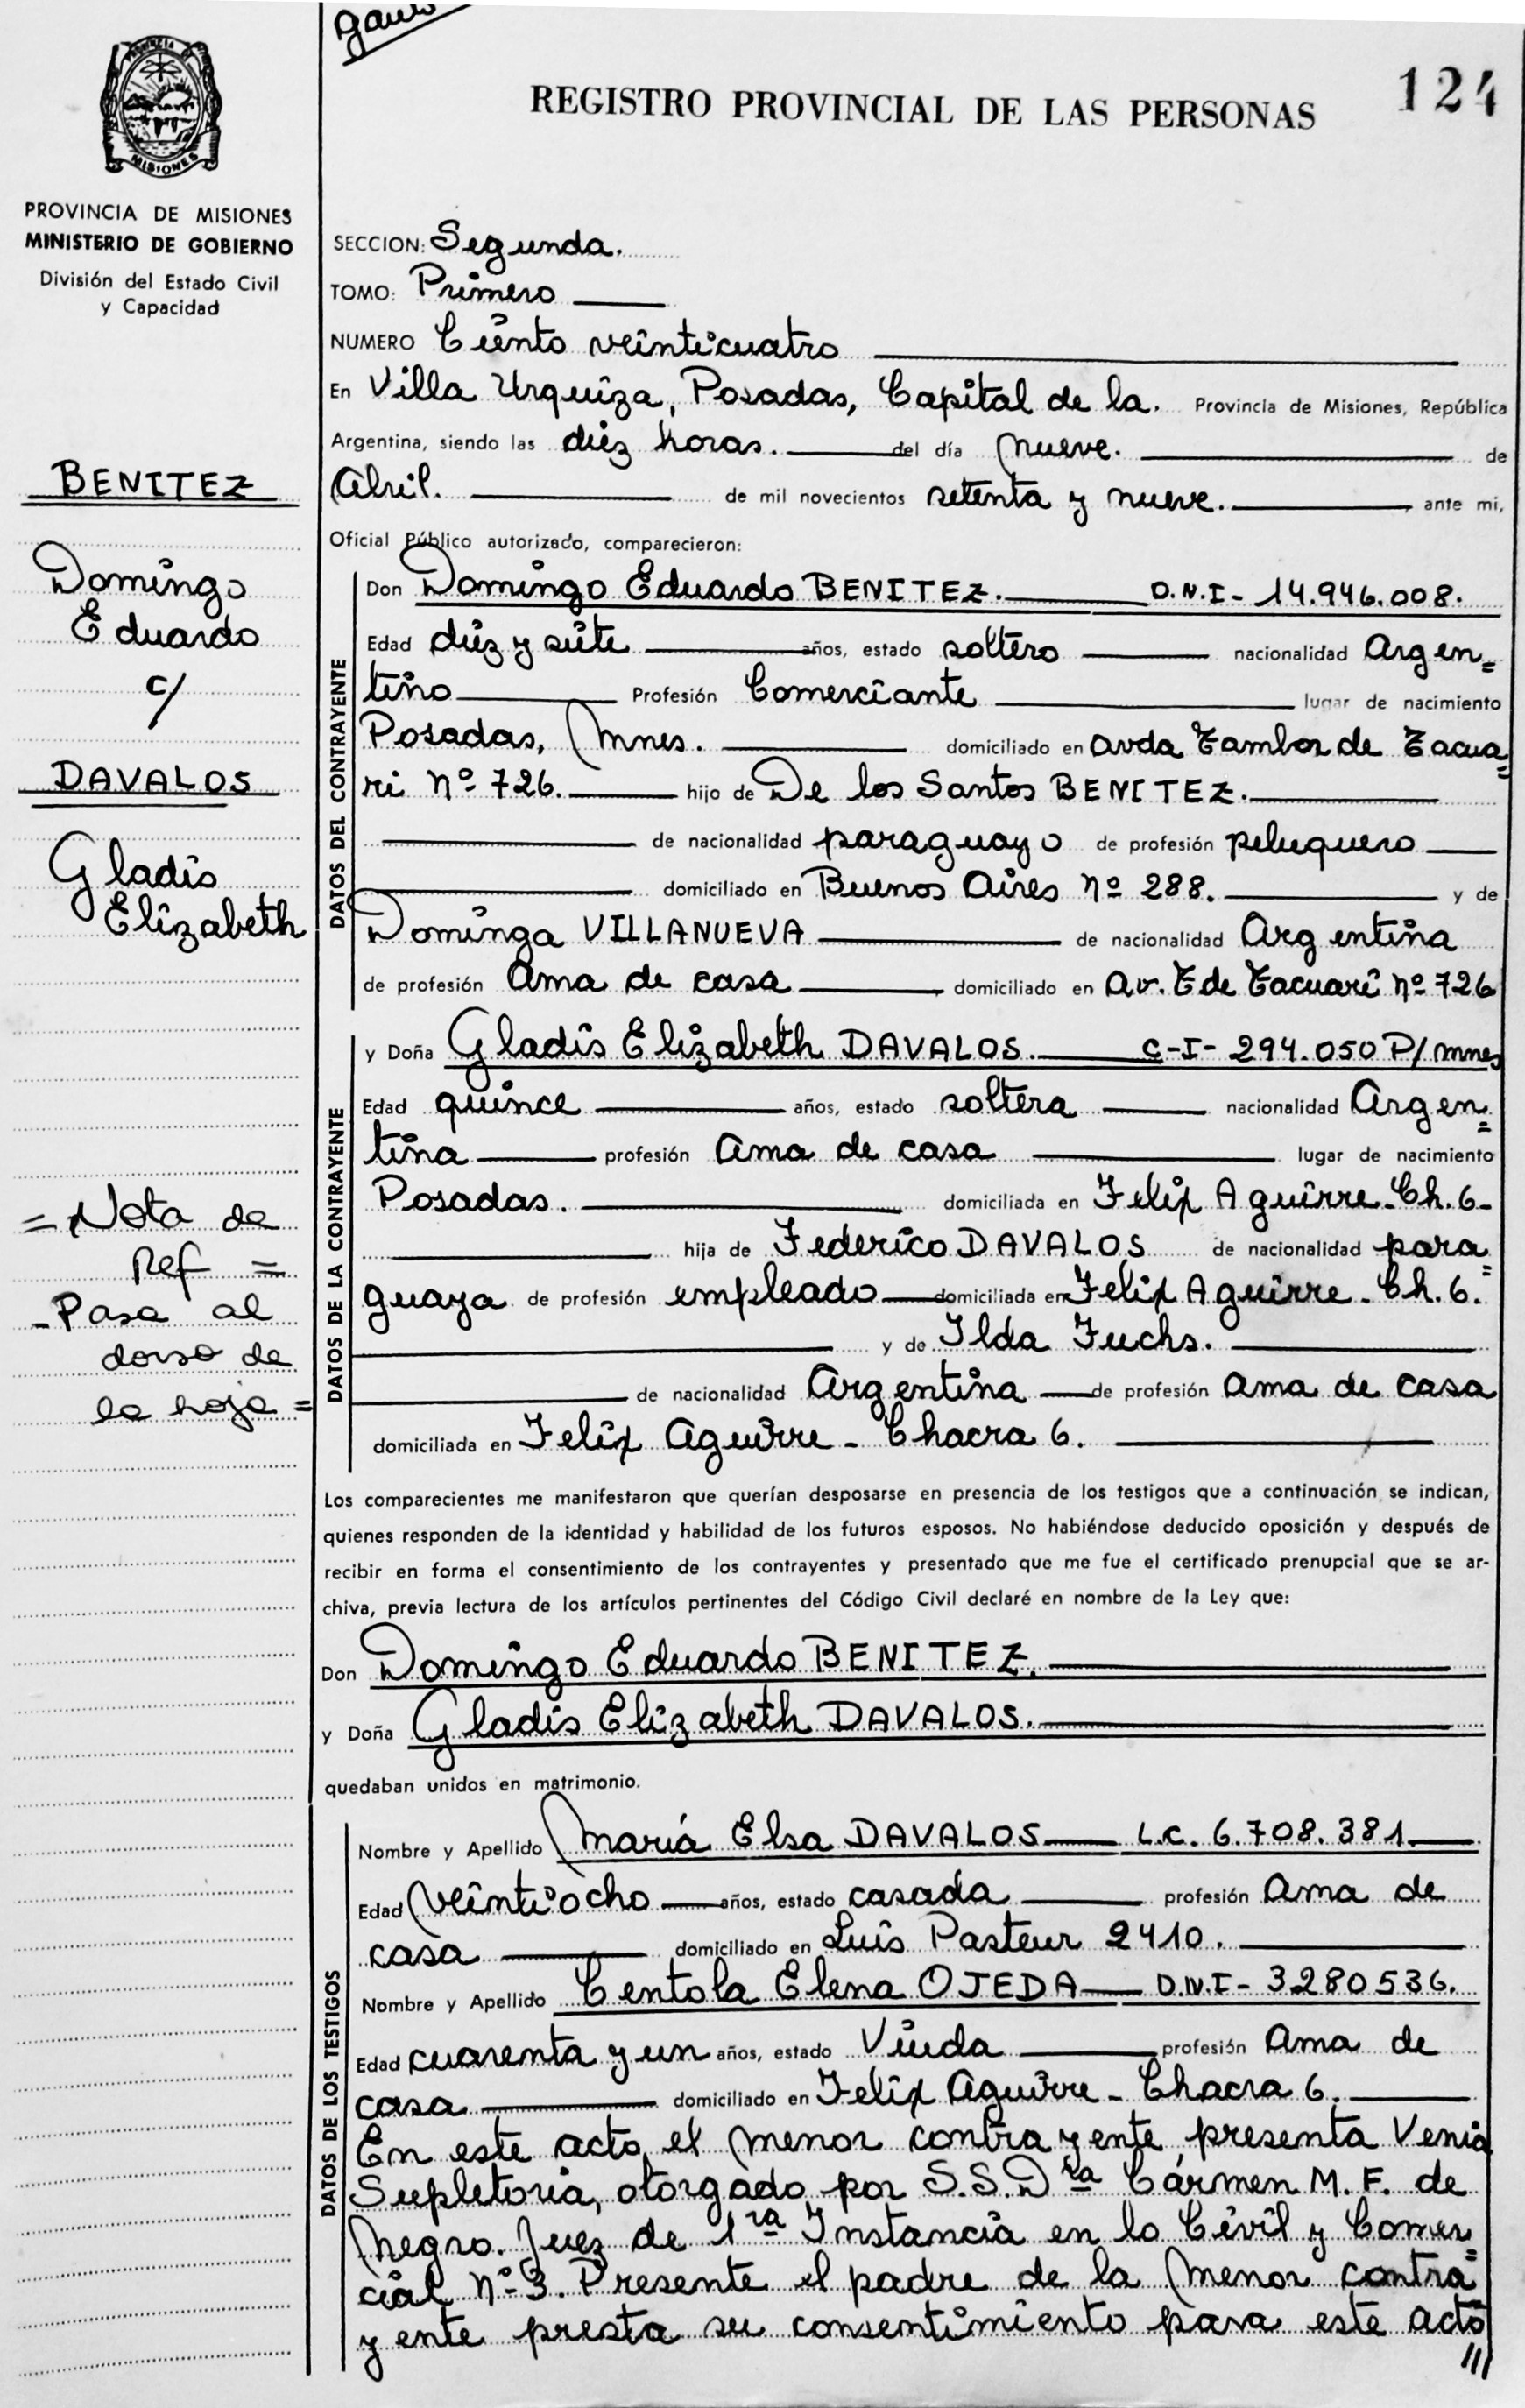 124
REGISTRO PROVINCIAL DE LAS PERSONAS
MISIONES
PROVINCIA DE MISIONES
MINISTERIO DE GOBIERNO
División del Estado Civil
y Capacidad
BENITEZ
Domingo
Eduardo
c/
DAVALOS
Gladis
Elizabeth
= Nota de
Ref =
- Pasa al
dorso de
la hoja =
SECCION: Segunda.
TOMO: Primero
NUMERO Ciento veinticuatro
En Villa Urquiza, Posadas, Capital de la. Provincia de Misiones, República
Argentina, siendo las diez horas. del día nueve. de
Abril. de mil novecientos setenta y nueve. , ante mi,
Oficial Público autorizado, comparecieron:
DATOS DEL CONTRAYENTE
Don Domingo Eduardo BENITEZ. D.N.I- 14.946.008.
Edad diez y siete años, estado soltero nacionalidad Argen=
tino Profesión Comerciante lugar de nacimiento
Posadas, Mnes. domiciliado en Avda Tambor de Tacua=
ri Nº 726. hijo de De los Santos BENITEZ.
de nacionalidad paraguayo de profesión peluquero
domiciliado en Buenos Aires Nº 288. y de
Dominga VILLANUEVA de nacionalidad Argentina
de profesión Ama de casa , domiciliado en Av. T de Tacuarí Nº 726
DATOS DE LA CONTRAYENTE
y Doña Gladis Elizabeth DAVALOS. C-I- 294.050 P/mnes
Edad quince años, estado soltera nacionalidad Argen=
tina profesión Ama de casa lugar de nacimiento
Posadas. domiciliada en Felix Aguirre - Ch. 6-
hija de Federico DAVALOS de nacionalidad para=
guaya de profesión empleado domiciliada en Felix Aguirre - Ch. 6.
y de Ilda Fuchs.
de nacionalidad Argentina de profesión Ama de casa
domiciliada en Felix Aguirre - Chacra 6.
Los comparecientes me manifestaron que querían desposarse en presencia de los testigos que a continuación se indican,
quienes responden de la identidad y habilidad de los futuros esposos. No habiéndose deducido oposición y después de
recibir en forma el consentimiento de los contrayentes y presentado que me fue el certificado prenupcial que se ar-
chiva, previa lectura de los artículos pertinentes del Código Civil declaré en nombre de la Ley que:
Don Domingo Eduardo BENITEZ.
y Doña Gladis Elizabeth DAVALOS.
quedaban unidos en matrimonio.
DATOS DE LOS TESTIGOS
Nombre y Apellido María Elsa DAVALOS L.C. 6.708.381
Edad Veintiocho años, estado casada profesión Ama de
casa domiciliado en Luis Pasteur 2410.
Nombre y Apellido Centola Elena OJEDA D.N.I- 3280536.
Edad cuarenta y un años, estado Viuda profesión Ama de
casa domiciliado en Felix Aguirre - Chacra 6.
En este acto, el menor contrayente, presenta Venia
Supletoria, otorgado por S.S.Dra Cármen M. F. de
Negro. Juez de 1ra Instancia en lo Civil y Comer=
cial Nº 3. Presente el padre de la menor contra=
yente presta su consentimiento para este acto
///